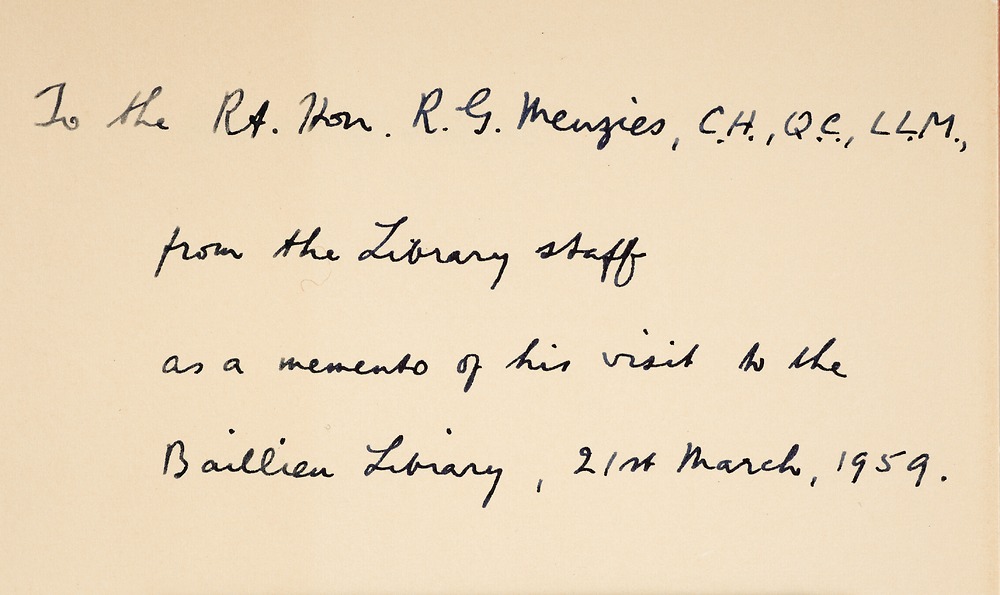 To the Rt. Hon. R. G. Menzies, C.H., Q.C., LL.M.,
from the Library staff
as a memento of his visit to the
Baillieu Library, 21st March, 1959.